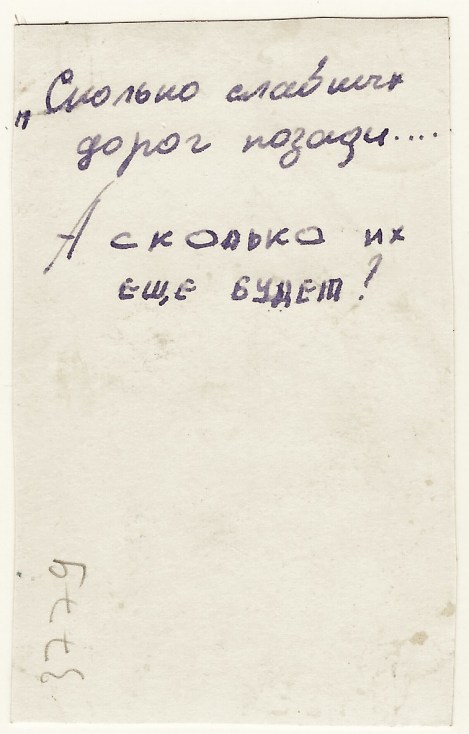 „Сколько славных
дорог позади....
А сколько их
еще будет!
3779